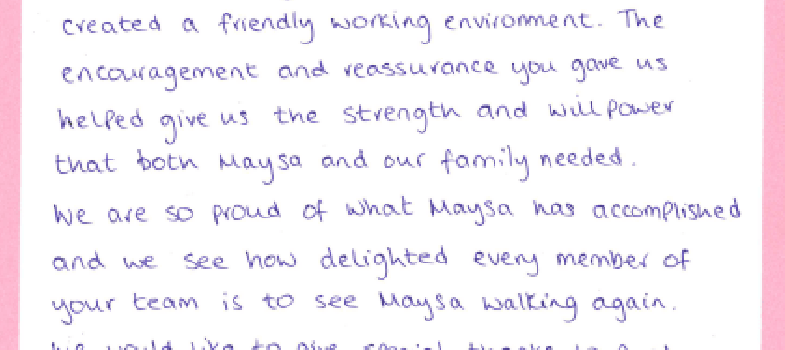 created a friendly working environment. The
encouragement and reassurance you gave us
helped give us the strength and willpower
that both Maysa and our family needed.
We are so proud of what Maysa has accomplished
and we see how delighted every member of
your team is to see Maysa walking again.
We would like to give special thanks to